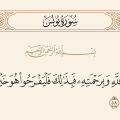 سُورَةُ يُونُسَ
بِسْمِ اللَّهِ الرَّحْمَٰنِ الرَّحِيمِ
اللَّهِ وَبِرَحْمَتِهِ فَبِذَٰلِكَ فَلْيَفْرَحُوا هُوَ